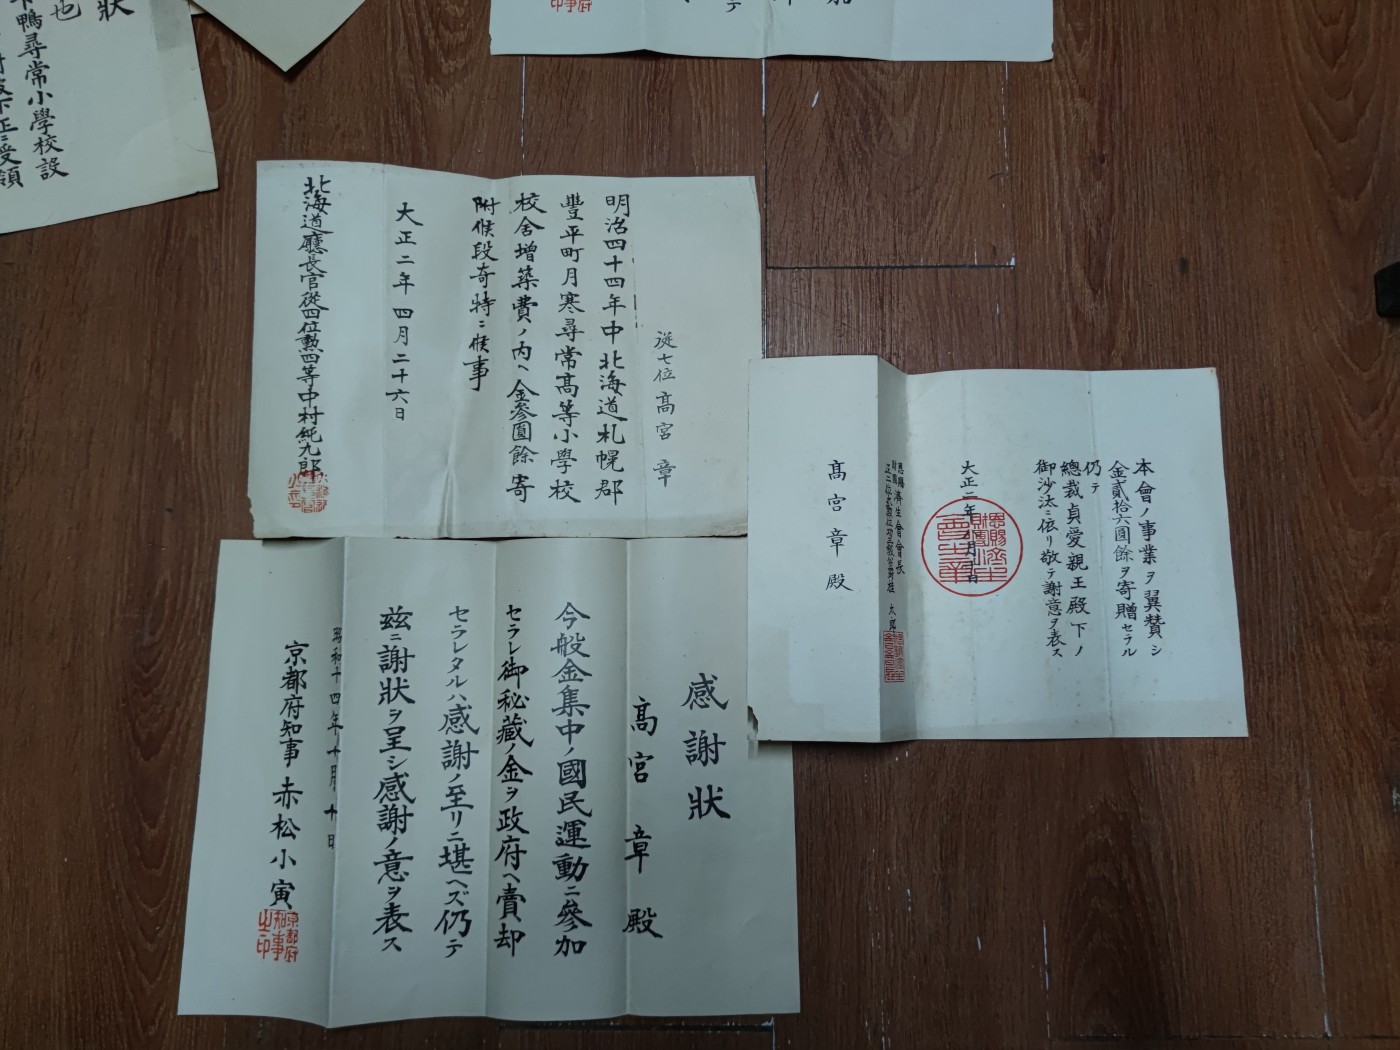 狀
也
鴨尋常小學校設
從七位髙宮章
明治四十四年中北海道札幌郡
豐平町月寒尋常髙等小學校
校舍增築費ノ內ヘ金參圓餘寄
附候段奇特ニ候事
大正二年四月二十六日
北海道廳長官從四位勲四等中村純九郎
本會ノ事業ヲ翼賛シ
金貳拾六圓餘ヲ寄贈セラル
仍テ
總裁貞愛親王殿下ノ
御沙汰ニ依リ敬テ謝意ヲ表ス
大正二年
髙宮章殿
感謝狀
髙宮章殿
今般金集中ノ國民運動ニ參加
セラレ御秘藏ノ金ヲ政府ヘ賣却
セラレタルハ感謝ノ至リニ堪ヘズ仍テ
玆ニ謝狀ヲ呈シ感謝ノ意ヲ表ス
昭和十四年十月十日
京都府知事赤松小寅
京都府知事之印